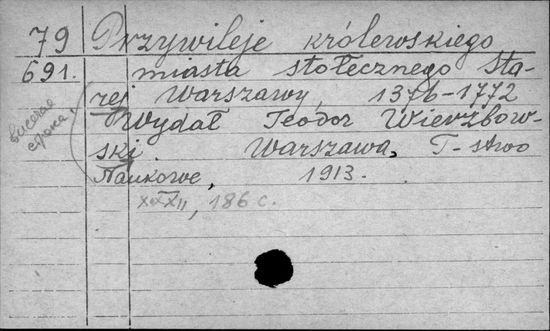 79 Przywileje królewskiego
691. miasta stołecznego Sta-
rej Warszawy, 1376-1772
Wydał Teodor Wierzbow-
ski. Warszawa, T-stwo
Naukowe, 1913.
XXXII, 186 c.